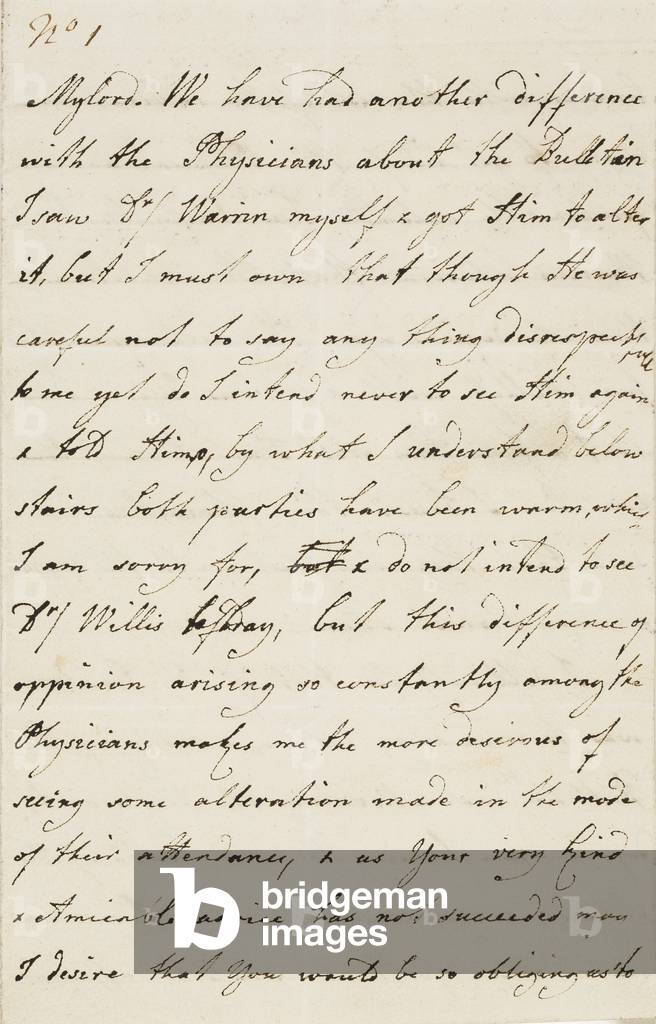 No 1
Mylord. We have had another difference
with the Physicians about the Bulletin
I saw Dr/ Warrin myself & got Him to alter
it, but I must own that though He was
careful not to say any thing disrespect
full
to me yet do I intend never to see Him again
& told Him, by what I understand below
stairs both parties have been warm, which
I am sorry for, but & do not intend to see
Dr/ Willis to day, but this difference of
oppinion arising so constantly among the
Physicians makes me the more desirous of
seeing some alteration made in the mode
of their attendance, & as Your very kind
& Amicable advice has not succeeded may
I desire that You would be so obliging as to
b bridgeman
images